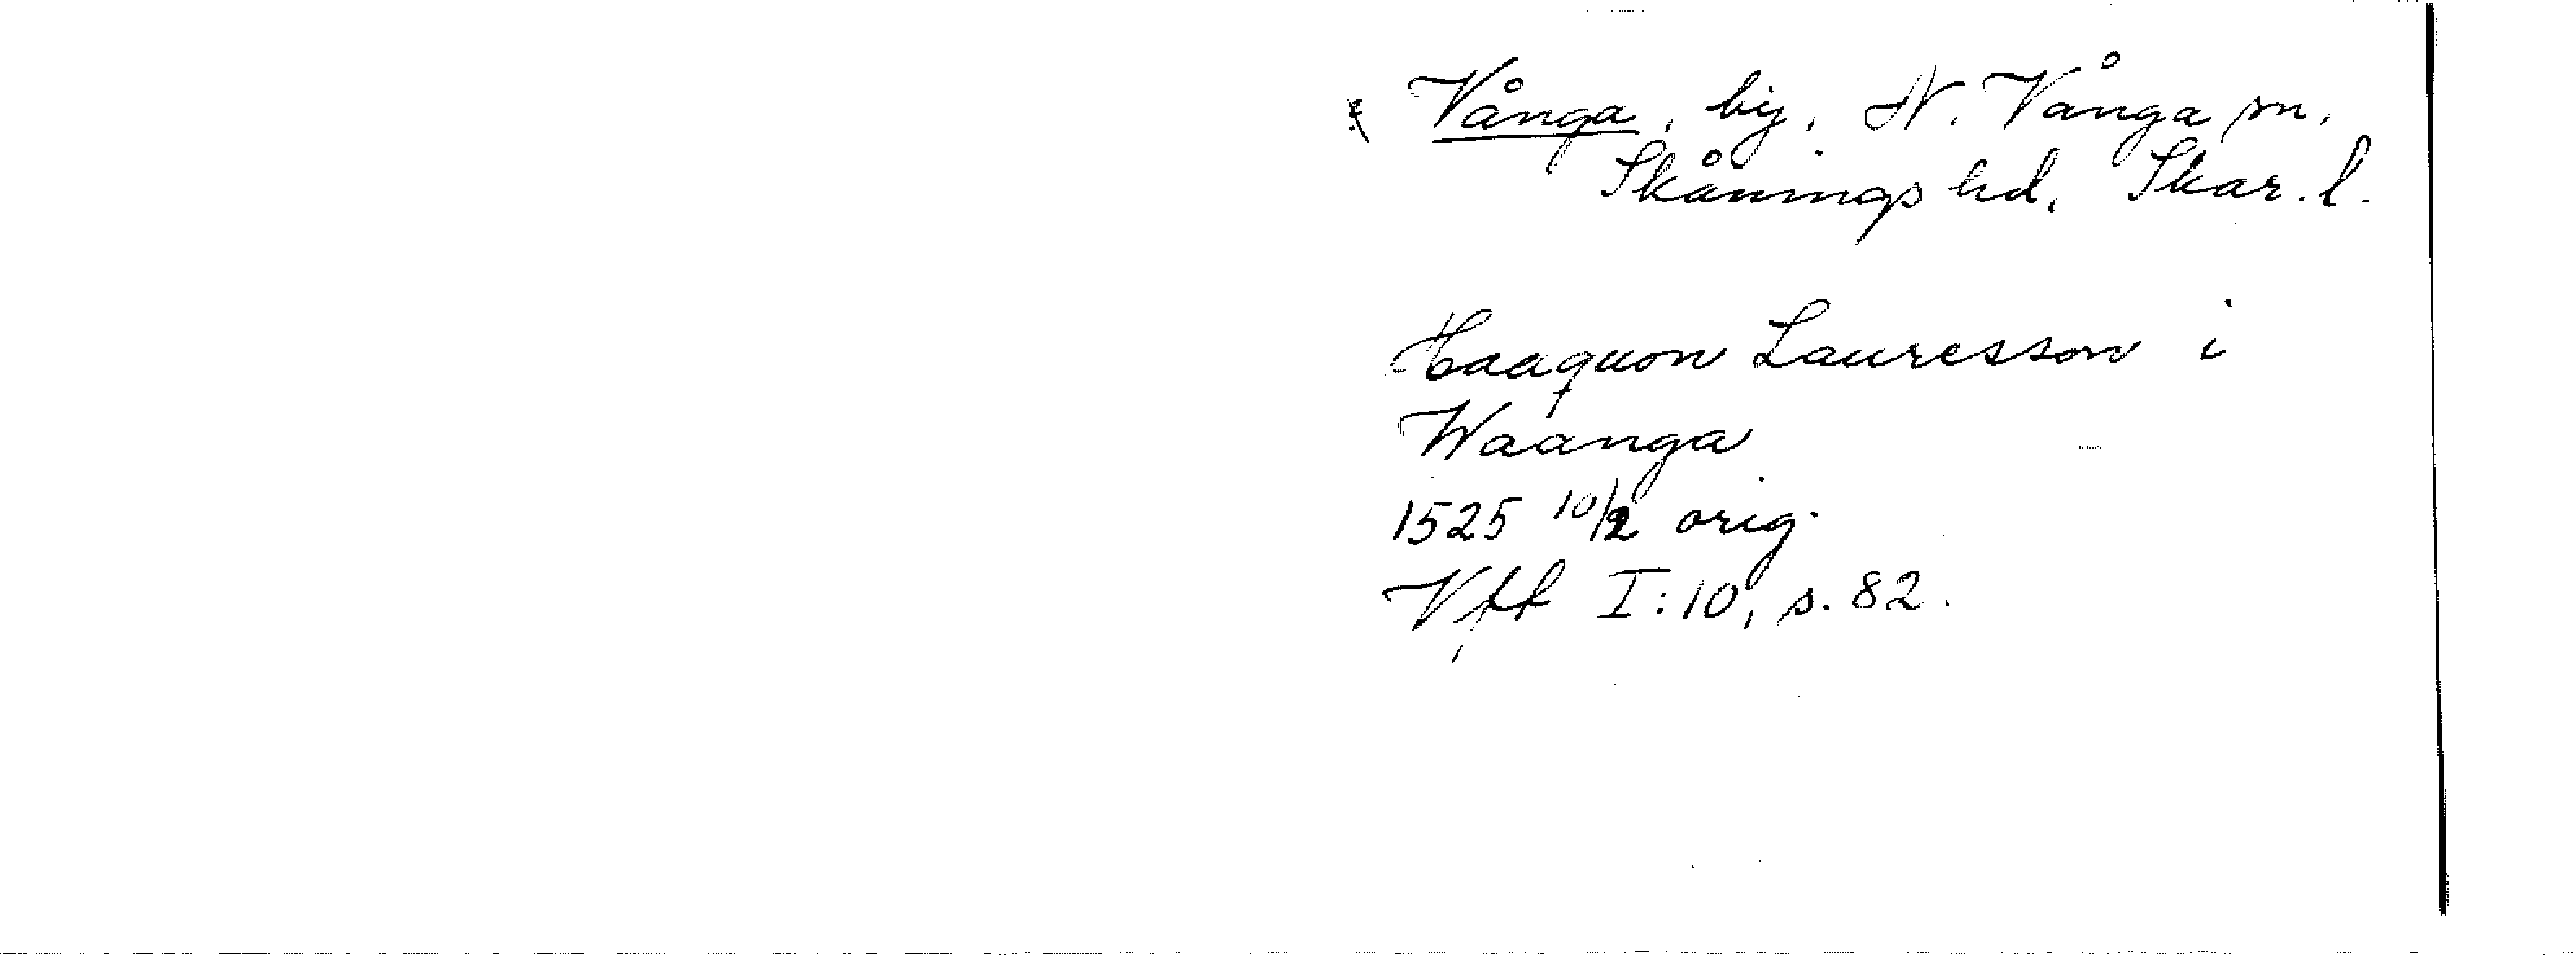 Vånga, by, N. Vånga sn,
Skånings hd, Skar. l.
Haaquon Lauresson i
Waanga
1525 10/2 orig.
Vff I:10, s. 82.